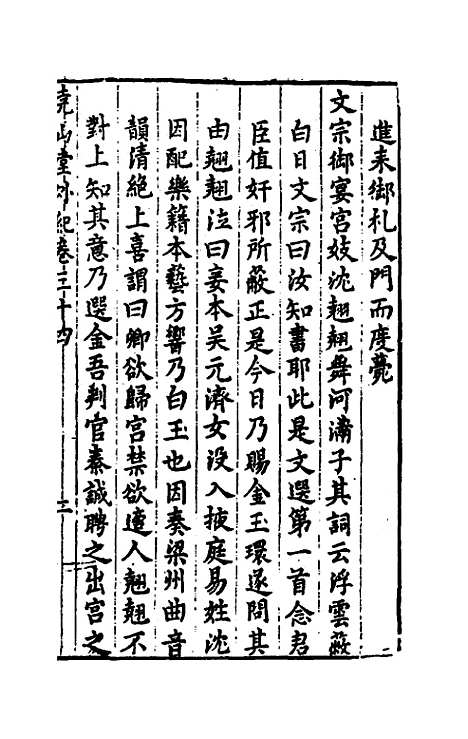 進来御札及門而度薨
文宗御宴宮妓沈翹翹舞河滿子其詞云浮雲蔽
白日文宗曰汝知書耶此是文選第一首念君
臣值奸邪所蔽正是今日乃賜金玉環遂問其
由翹翹泣曰妾本吴元濟女没入掖庭易姓沈
因配樂籍本藝方響乃白玉也因奏梁州曲音
韻清絶上喜謂曰卿欲歸宮禁欲適人翹翹不
對上知其意乃選金吾判官秦誠聘之出宮之
堯山堂外紀卷三十四 三